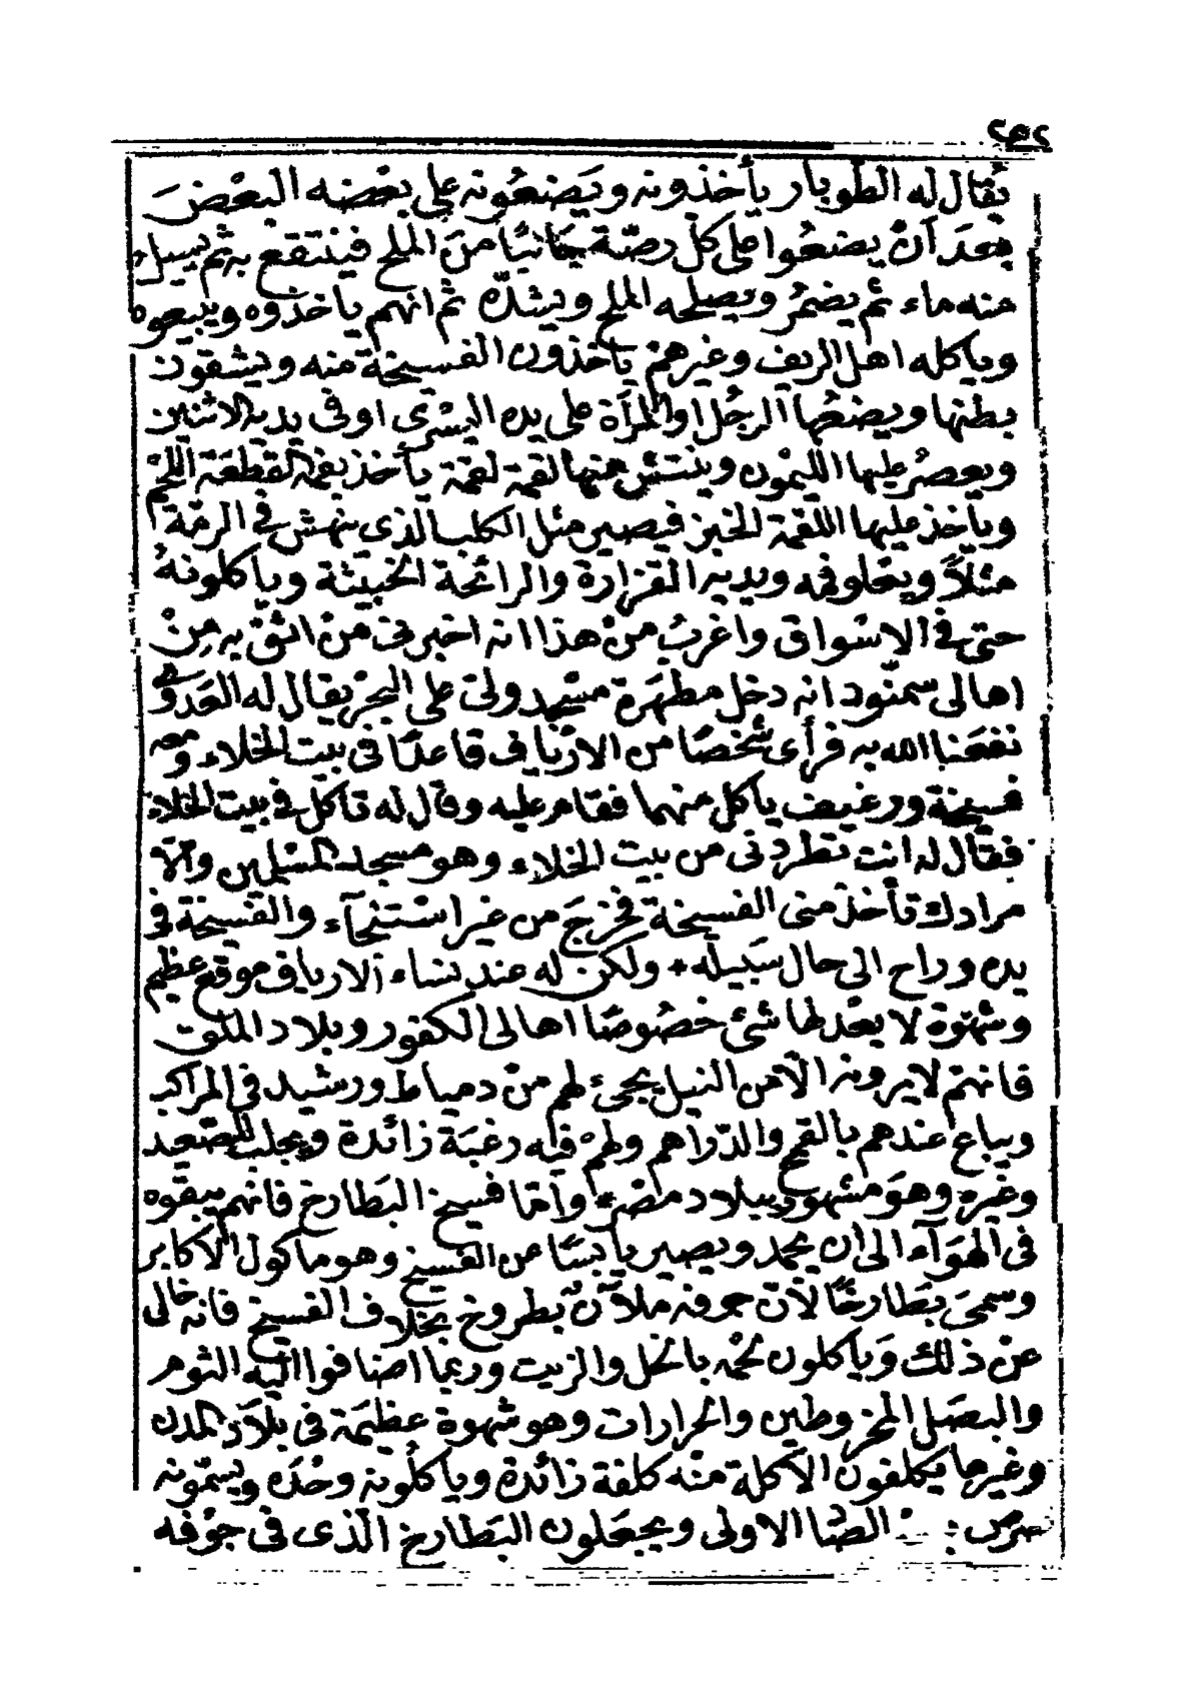 ٢٥٢
يُقال له الطوبار يأخذونه ويَضنعُونه على بغضه البعْضَ
بعدَ أنْ يضعُوا على كلّ رصّة جانبًا من الملح فينتقع به ثم يسيل
منه ماء ثم يضمُر ويصلحه الملح ويشدّه ثم انهم ياخذوه ويبيعوه
وياكله اهل الريف وغيرهمْ يأخذون الفسيخة منه ويشقون
بطنها ويضعُها الرجُل او المرأة على يده اليسْرى او فى يديه الاثنين
ويعصرُ عليها الليمون وينتش منها لقمة لقمة يأخذ بفمه القطعَة اللحْم
وياخذ عليها اللقمة الخبز فيصير مثل الكلب الذى ينهش فى الرمّة
مثلاً ويعلو فمه ويديه القزارة والرائحة الخبيثة وياكلونهُ
حتى فى الاسْواق واغربُ منْ هذا انه اخبرنى منْ اثق به مِنْ
اهالى سمنّود انه دخل مطهَرة مسْجد ولىّ على البحْر يقال له العَدوى
نفعَنا الله به فرأى شخصًا من الارْياف قاعدًا فى بيت الخلاء ومعه
فسيخة ورغيف ياكل منهما فقام عليه وقال له تاكل فى بيت الخلاء
فقال له انت تطردنى من بيت الخلاء وهو مسجد المسْلمين والاّ
مرادك تأخذ منى الفسيخة فخرَجَ من غير اسْتنجآء والفسيخة فى
يده وراح الى حال سَبيله ولكنْ له عند نساء الارياف موقع عظيم
وشهوَة لا يعْدلها شئ خصُوصًا اهالى الكفور وبلاد الملق
فانهمْ لا يرونه الاّ من النيل يجئ لهم منْ دمياط ورشيد فى المراكب
ويباع عندهم بالقمح والدّراهم ولهمْ فيه رغبَة زائدة ويجلب للصّعيد
وغيره وهوَ مشهود ببلاد مصْر وأمّا فسيخ البَطارخ فانهم يبقوه
فى الهوَآء الى ان يجمد ويصير يابسًا عن الفسيخ وهو ماكول الاكابر
وسمىَ بَطارخًا لأنّ جوفه ملآنٌ بطروخ بخلاف الفسيخ فانه خال
عنْ ذلك وَياكلون لحْمه بالخل والزيت وربما اضافوا اليْه الثوم
والبصَل المخروطين والحرارات وهو شهوة عظيمَة فى بلاَد المدن
وغيرها يكلفون الاكلة منْه كلفة زائدة وياكلونه وحْدَه ويسمّونه
الضّا الاولى ويجعَلون البَطارخ الّذى فى جوْفه